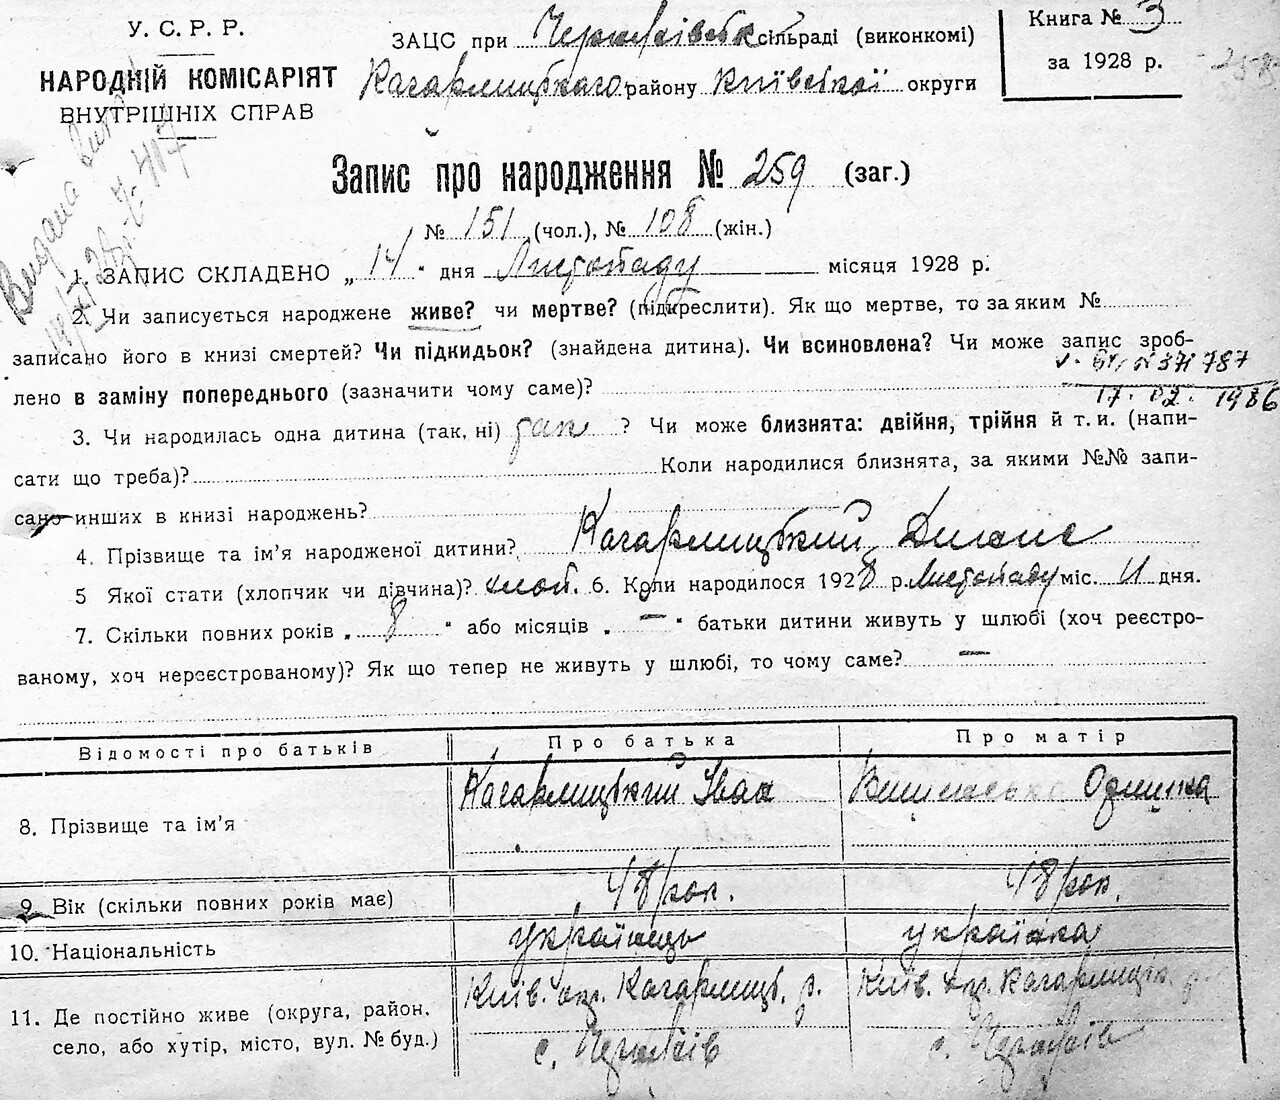 У. С. Р. Р.
НАРОДНІЙ КОМІСАРІЯТ
ВНУТРІШНІХ СПРАВ
ЗАЦС при сільраді (виконкомі)
Кагарлицького району Київської округи
Книга № 3
за 1928 р.
Видана
Запис про народження № 259 (заг.)
№ 151 (чол.), № 108 (жін.)
1. ЗАПИС СКЛАДЕНО „ 14 " дня Листопаду місяця 1928 р.
2. Чи записується народжене живе? чи мертве? (підкреслити). Як що мертве, то за яким №
записано його в книзі смертей? Чи підкидьок? (знайдена дитина). Чи всиновлена? Чи може запис зроб-
лено в заміну попереднього (зазначити чому саме)?
371787
17. 02. 1986
3. Чи народилась одна дитина (так, ні) так ? Чи може близнята: двійня, трійня й т. и. (напи-
сати що треба)? Коли народилися близнята, за якими №№ запи-
сано инших в книзі народжень?
4. Прізвище та ім'я народженої дитини? Кагарлицький
5 Якої стати (хлопчик чи дівчина)? хлоп. 6. Коли народилося 1928 р. Листопаду міс. 11 дня.
7. Скільки повних років „ 8 " або місяців „ — " батьки дитини живуть у шлюбі (хоч реєстро-
ваному, хоч нереєстрованому)? Як що тепер не живуть у шлюбі, то чому саме? —
Відомості про батьків Про батька Про матір
8. Прізвище та ім'я Кагарлицький Іван
9. Вік (скільки повних років має) 48 рок. 48 рок.
10. Національність українець українка
11. Де постійно живе (округа, район, село, або хутір, місто, вул. № буд.) Київ. окр. Кагарлицьк. р. Київ. окр. Кагарлицьк. р.
с. с.